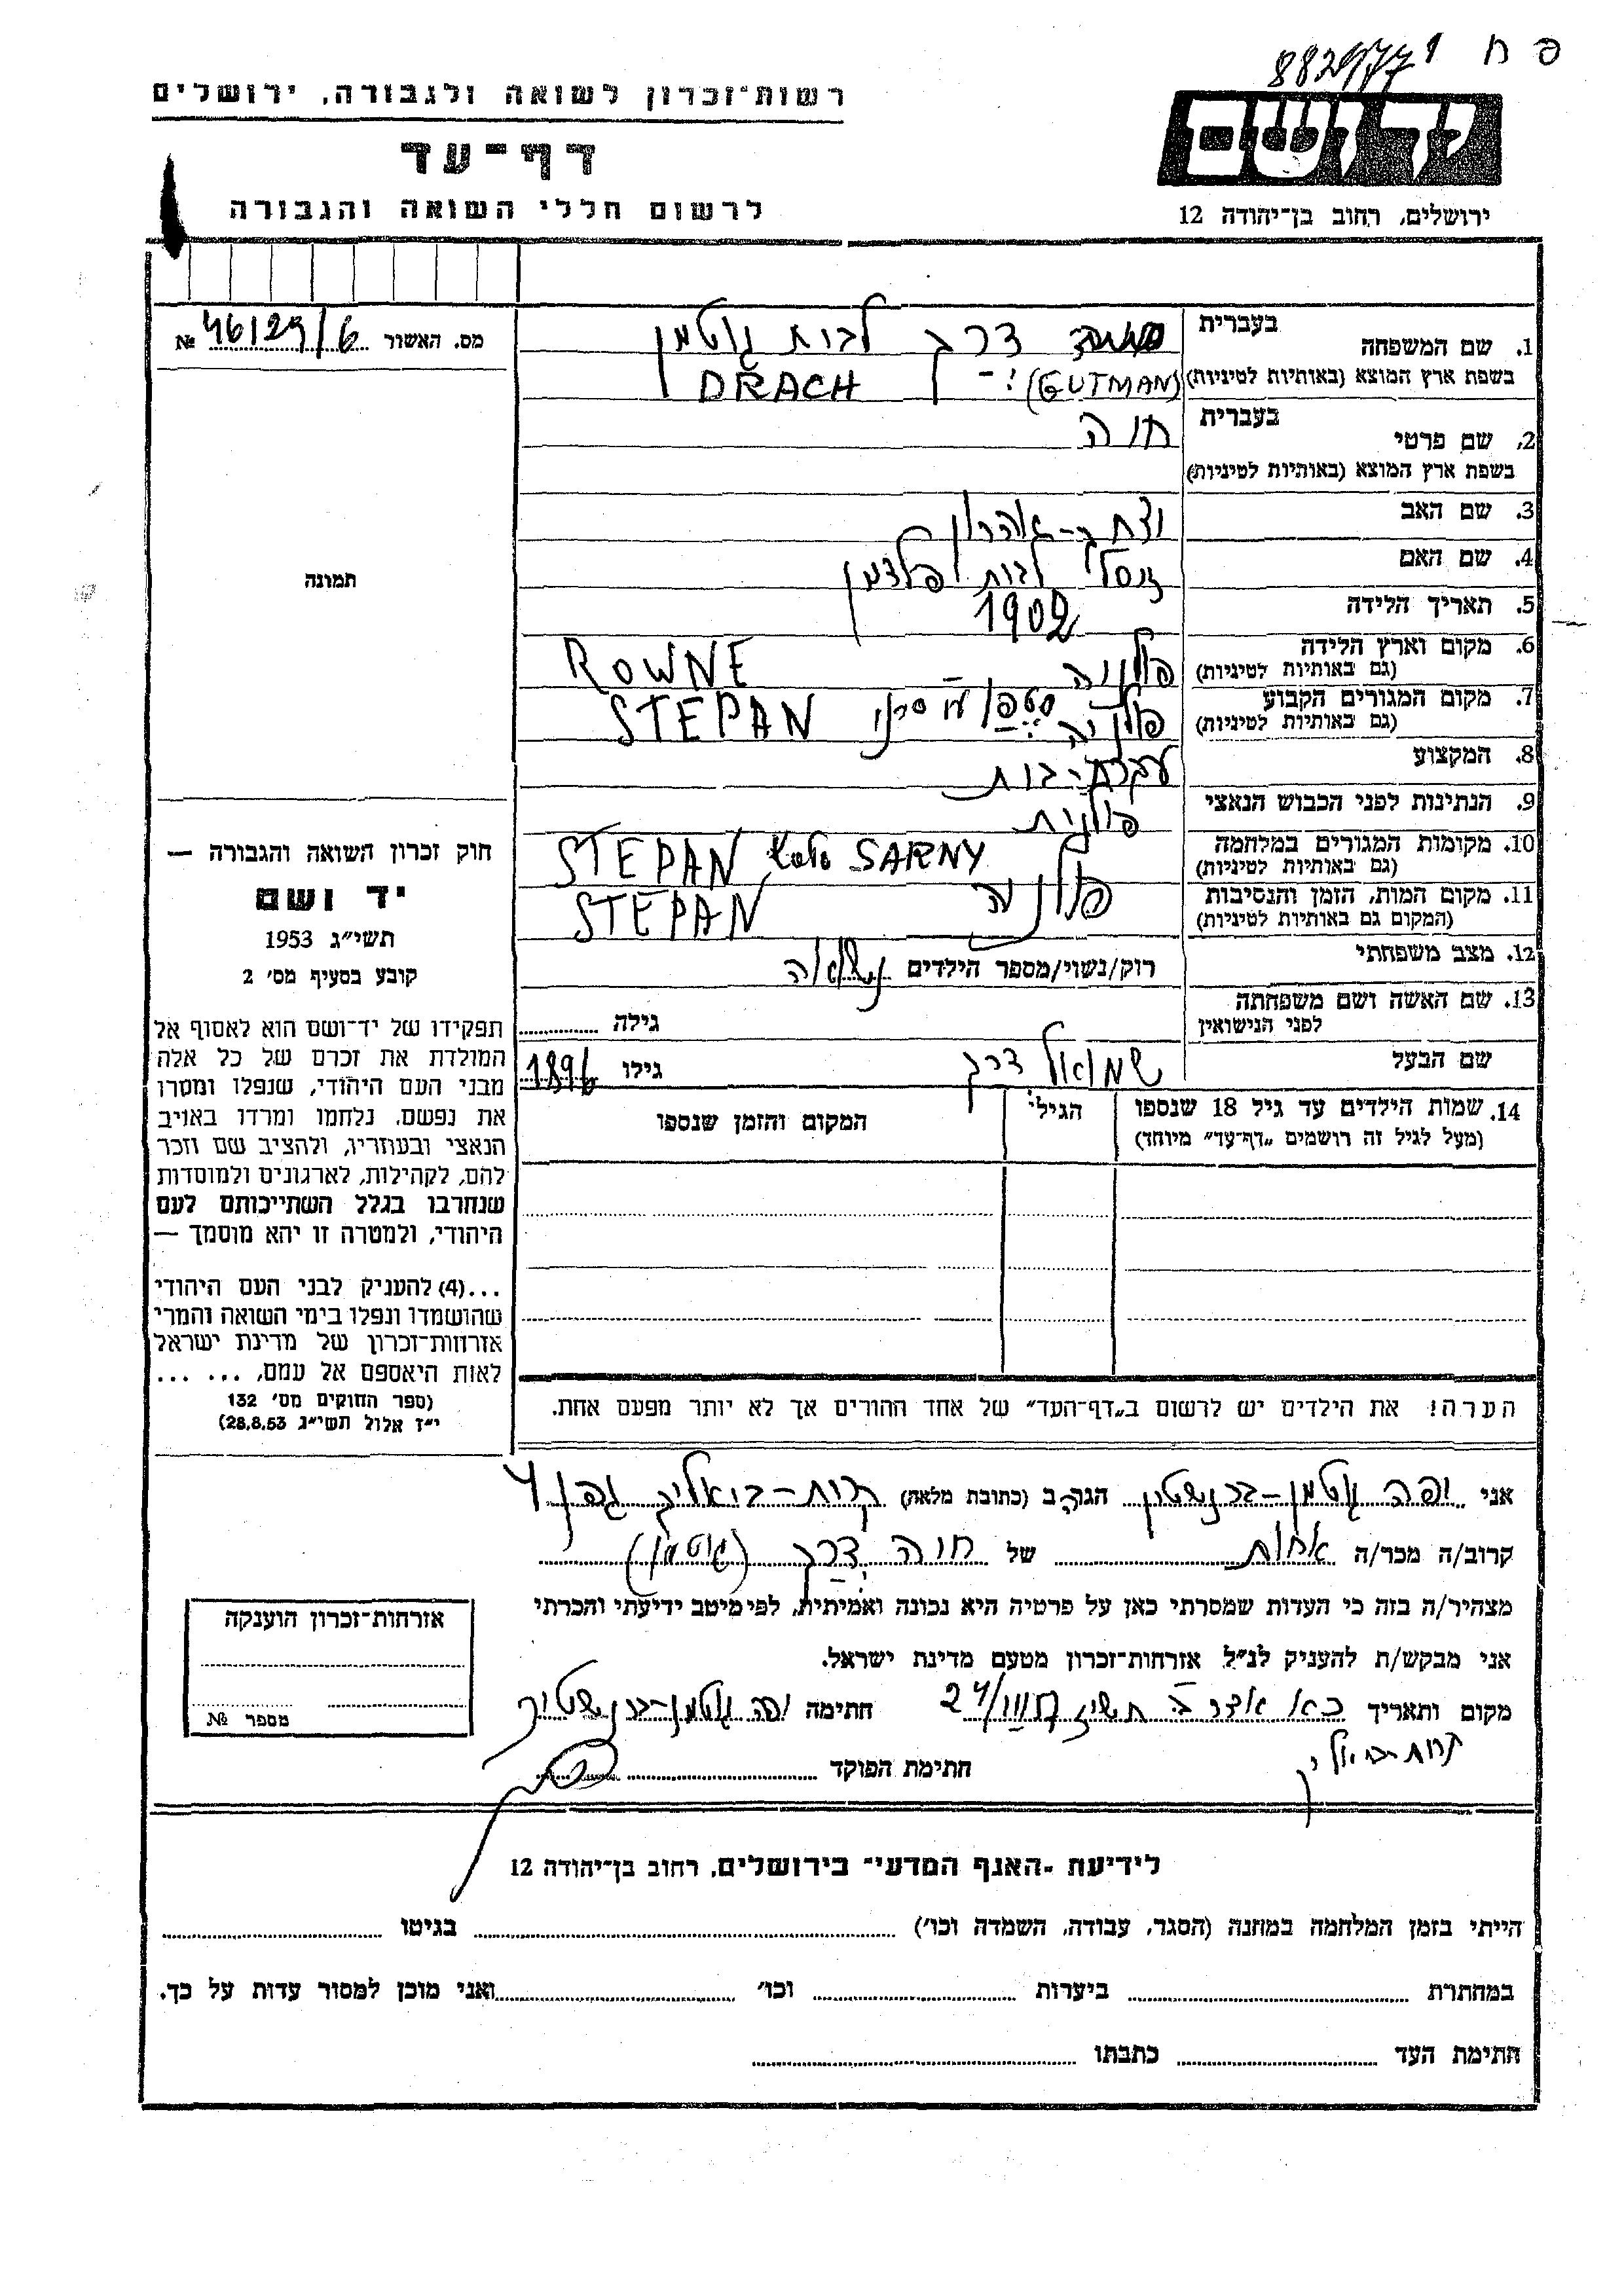 פ ח
רשות־זכרון לשואה ולגבורה, ירושלים
דף־עד
לרשום חללי השואה והגבורה
ידושם
ירושלים, רחוב בן־יהודה 12
מס. האשור 46129/6 №
1. שם המשפחה בעברית דרך לבית גוטמן
בשפת ארץ המוצא (באותיות לטיניות) (GUTMAN) DRACH
2. שם פרטי בעברית חוה
בשפת ארץ המוצא (באותיות לטיניות)
3. שם האב יצחק-אהרון
4. שם האם לבית פלדמן
5. תאריך הלידה 1902
6. מקום וארץ הלידה פולניה ROWNE
(גם באותיות לטיניות)
7. מקום המגורים הקבוע פולניה סטפן ע״י סרני STEPAN
(גם באותיות לטיניות)
8. המקצוע עקרת-בית
9. הנתינות לפני הכבוש הנאצי פולנית
10. מקומות המגורים במלחמה STEPAN koło SARNY
(גם באותיות לטיניות)
11. מקום המות, הזמן והנסיבות פולניה STEPAN
(המקום גם באותיות לטיניות)
12. מצב משפחתי רוק/נשוי/מספר הילדים נשואה
13. שם האשה ושם משפחתה
לפני הנישואין גילה
שם הבעל שמואל דרך גילו 1896
14. שמות הילדים עד גיל 18 שנספו הגיל המקום והזמן שנספו
(מעל לגיל זה רושמים „דף־עד״ מיוחד)
הערה! את הילדים יש לרשום ב„דף־העד״ של אחד ההורים אך לא יותר מפעם אחת.
תמונה
חוק זכרון השואה והגבורה —
יד ושם
תשי״ג 1953
קובע בסעיף מס׳ 2
תפקידו של יד־ושם הוא לאסוף אל
המולדת את זכרם של כל אלה
מבני העם היהודי, שנפלו ומסרו
את נפשם, נלחמו ומרדו באויב
הנאצי ובעוזריו, ולהציב שם וזכר
להם, לקהילות, לארגונים ולמוסדות
שנחרבו בגלל השתייכותם לעם
היהודי, ולמטרה זו יהא מוסמך —
...(4) להעניק לבני העם היהודי
שהושמדו ונפלו בימי השואה והמרי
אזרחות־זכרון של מדינת ישראל
לאות היאספם אל עמם, ... ...
(ספר החוקים מס׳ 132
י״ז אלול תשי״ג 28.8.53)
אני יפה גוטמן-ברנשטין הגר/ה ב (כתובת מלאה) קרית-ביאליק גפן 4
קרוב/ה מכר/ה אחות של חוה דרך (גוטמן)
מצהיר/ה בזה כי העדות שמסרתי כאן על פרטיה היא נכונה ואמיתית, לפי מיטב ידיעתי והכרתי
אני מבקש/ת להעניק לנ״ל אזרחות־זכרון מטעם מדינת ישראל.
מקום ותאריך כא אדר ב תשיז 24/III חתימה יפה גוטמן-ברנשטין
קרית-ביאליק
חתימת הפוקד
אזרחות־זכרון הוענקה
מספר №
לידיעת ״האגף המדעי״ בירושלים, רחוב בן־יהודה 12
הייתי בזמן המלחמה במחנה (הסגר, עבודה, השמדה וכו׳) בגיטו
במחתרת ביערות וכו׳ ואני מוכן למסור עדות על כך.
חתימת העד כתבתו